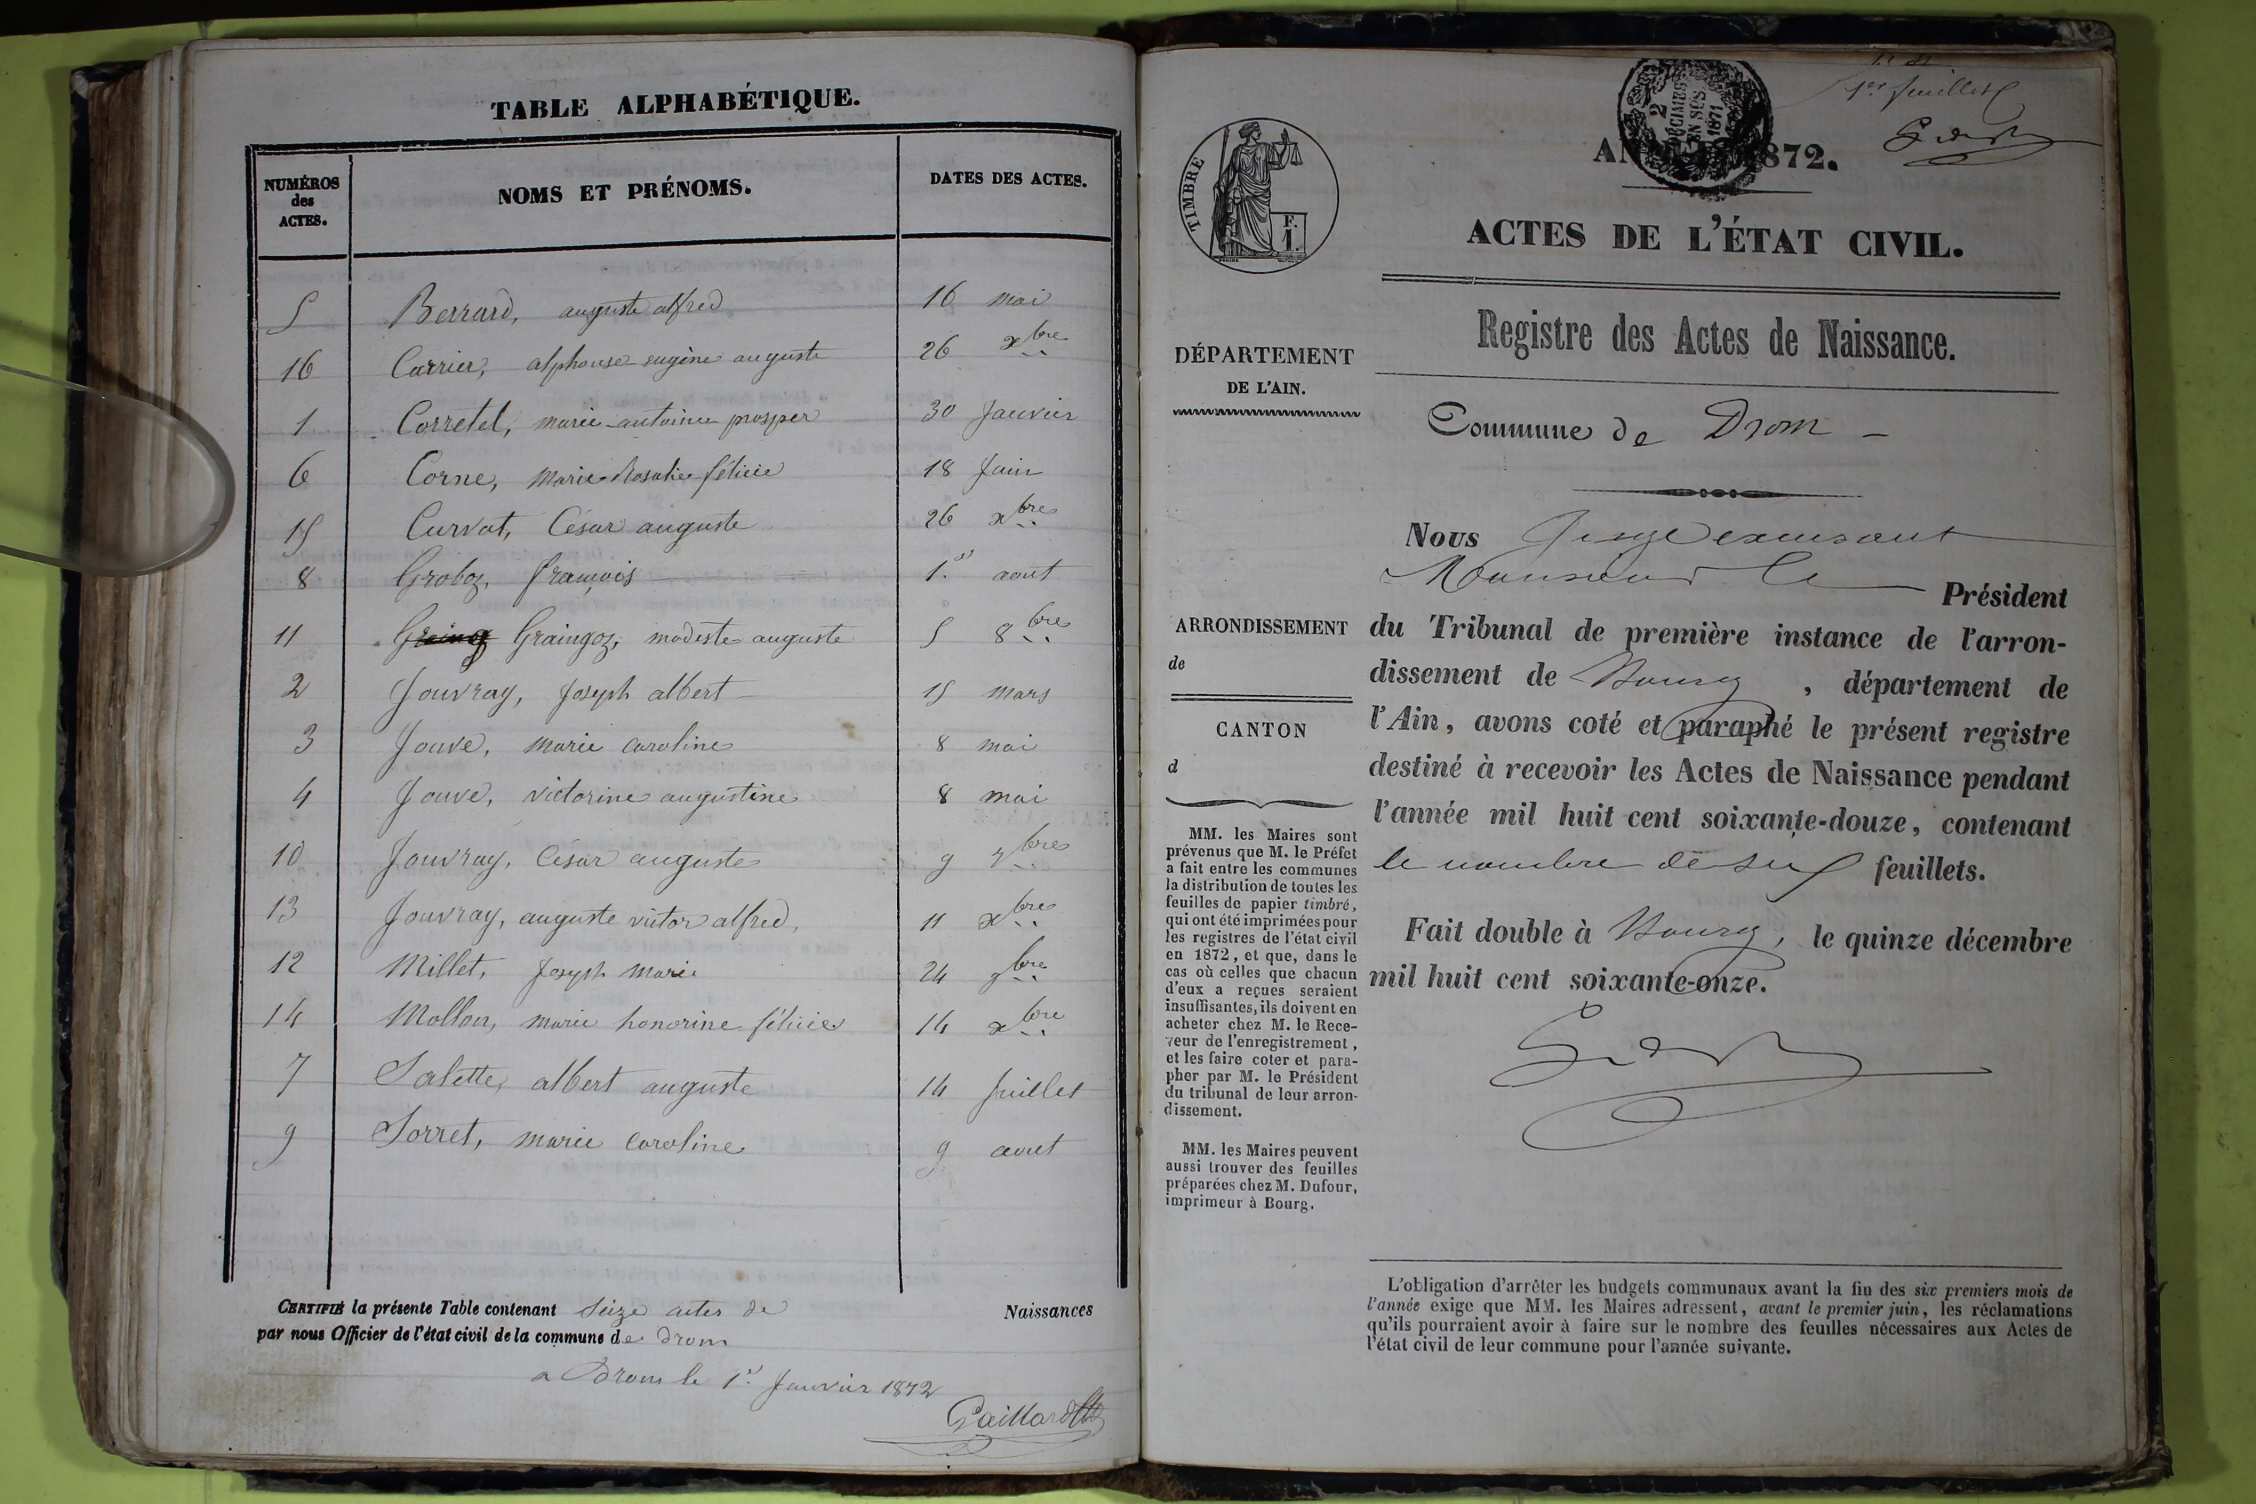 TABLE ALPHABÉTIQUE.
NUMÉROS des ACTES. NOMS ET PRÉNOMS. DATES DES ACTES.
5 Berrard, auguste alfred 16 mai
16 Carrier, alphonse eugène auguste 26 xbre
1 Corretel, marie antoine prosper 30 Janvier
6 Corne, Marie Rosalie félicie 18 Juin
15 Curvat, César auguste 26 xbre
8 Groboz, françois 1er aout
11 Graing Graingoz, modeste auguste 5 8bre
2 Jouvray, Joseph albert 15 mars
3 Jouve, marie caroline 8 mai
4 Jouve, victorine augustine 8 mai
10 Jouvray, César auguste 9 7bre
13 Jouvray, auguste victor alfred, 11 xbre
12 Millet, Joseph Marie 24 9bre
14 Mollon, marie honorine félicie 14 xbre
7 Salette, albert auguste 14 Juillet
9 Sorret, marie caroline 9 aout
CERTIFIÉ la présente Table contenant Seize actes de Naissances
par nous Officier de l'état civil de la commune de Drom
a Drom le 1er Janvier 1872
Gaillard
1er feuillet
2 DÉCIMES EN SUS 1871
TIMBRE
F. 1.
ANNÉE 1872.
ACTES DE L'ÉTAT CIVIL.
Registre des Actes de Naissance.
Commune de Drom
DÉPARTEMENT
DE L'AIN.
ARRONDISSEMENT
de
CANTON
d
MM. les Maires sont
prévenus que M. le Préfet
a fait entre les communes
la distribution de toutes les
feuilles de papier timbré,
qui ont été imprimées pour
les registres de l'état civil
en 1872, et que, dans le
cas où celles que chacun
d'eux a reçues seraient
insuffisantes, ils doivent en
acheter chez M. le Rece-
veur de l'enregistrement,
et les faire coter et para-
pher par M. le Président
du tribunal de leur arron-
dissement.
MM. les Maires peuvent
aussi trouver des feuilles
préparées chez M. Dufour,
imprimeur à Bourg.
Nous Juge excusant
Monsieur le Président
du Tribunal de première instance de l'arron-
dissement de Bourg, département de
l'Ain, avons coté et paraphé le présent registre
destiné à recevoir les Actes de Naissance pendant
l'année mil huit cent soixante-douze, contenant
le nombre de six feuillets.
Fait double à Bourg, le quinze décembre
mil huit cent soixante-onze.
L'obligation d'arrêter les budgets communaux avant la fin des six premiers mois de
l'année exige que MM. les Maires adressent, avant le premier juin, les réclamations
qu'ils pourraient avoir à faire sur le nombre des feuilles nécessaires aux Actes de
l'état civil de leur commune pour l'année suivante.